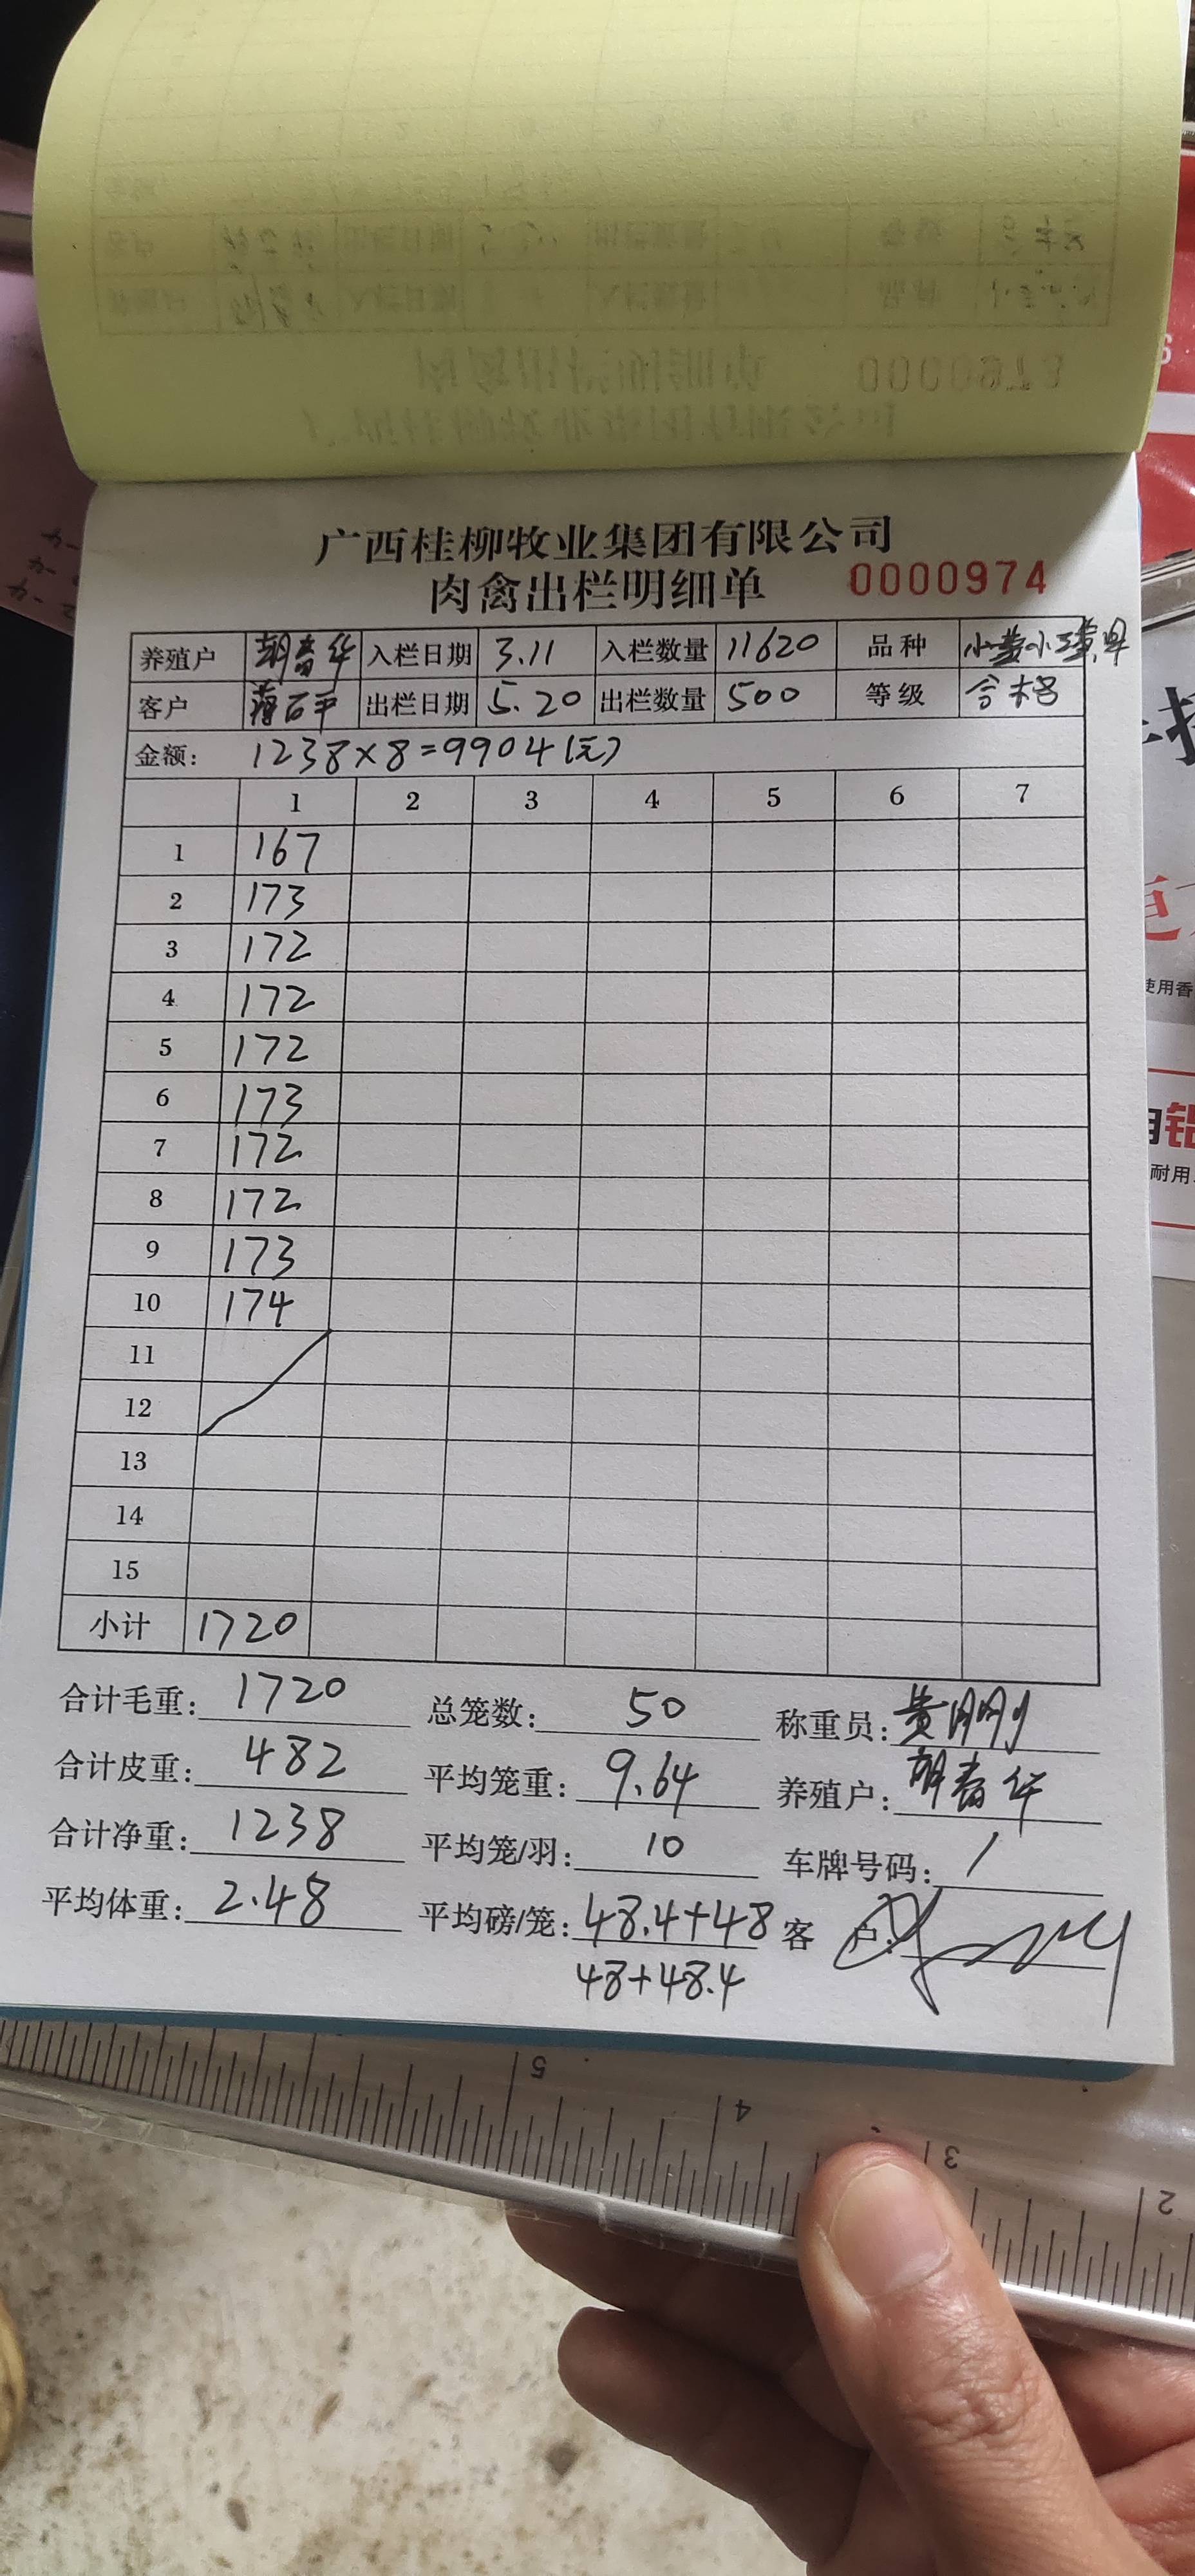 广西桂柳牧业集团有限公司
肉禽出栏明细单 0000974
养殖户 胡春华 入栏日期 3.11 入栏数量 11620 品种
客户 出栏日期 5.20 出栏数量 500 等级 合格
金额: 1238×8=9904(元)
1 2 3 4 5 6 7
1 167
2 173
3 172
4 172
5 172
6 173
7 172
8 172
9 173
10 174
11
12
13
14
15
小计 1720
合计毛重: 1720 总笼数: 50 称重员: 黄刚刚
合计皮重: 482 平均笼重: 9.64 养殖户: 胡春华
合计净重: 1238 平均笼/羽: 10 车牌号码: /
平均体重: 2.48 平均磅/笼: 48.4+48 客户:
48+48.4
使用香
耐用
5 4 3 2